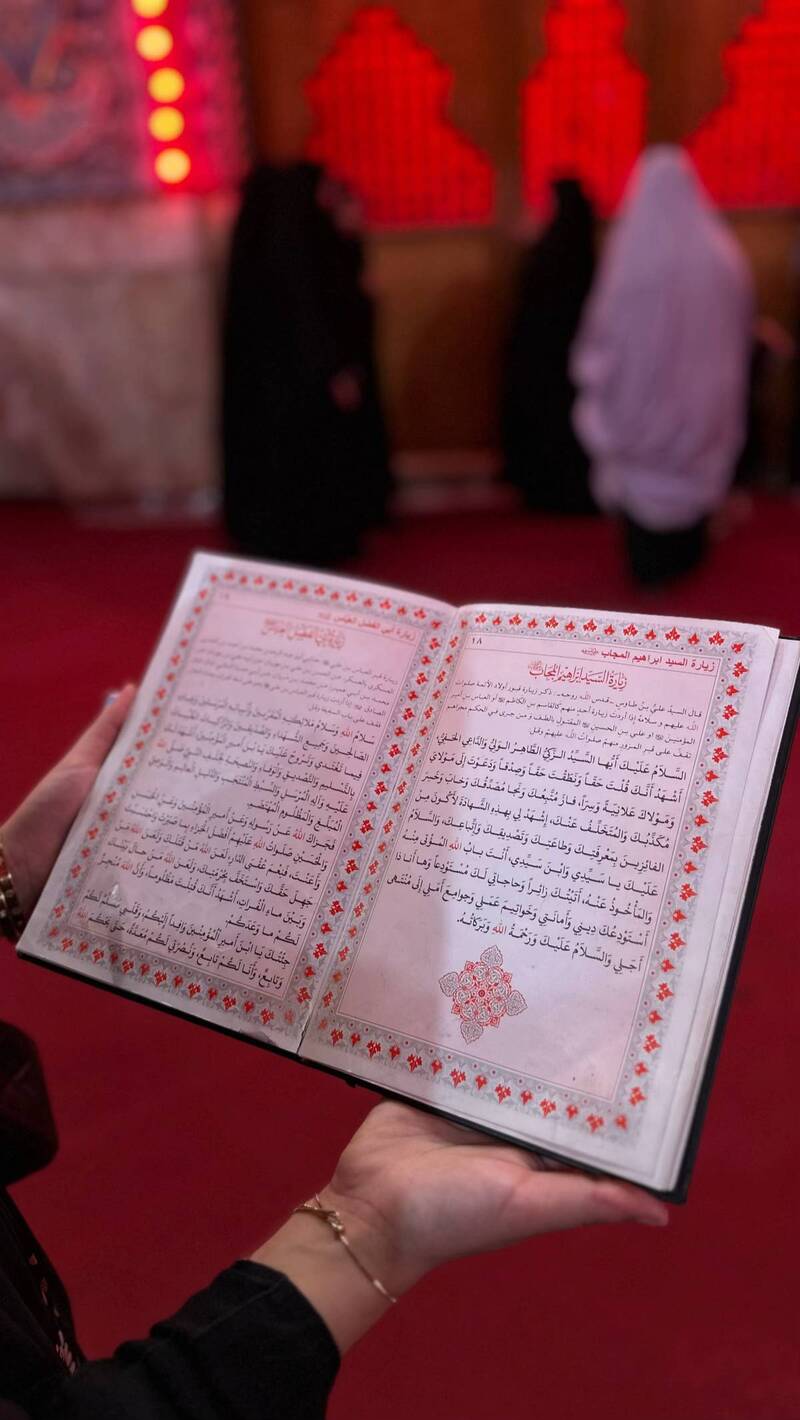 ١٨
زيارة السيد ابراهيم المجاب
زيارة السيد ابراهيم المجاب
قال السيد علي بن طاوس ـ قدس الله روحه ـ: ذكر زيارة قبور أولاد الأئمة صلوات
الله عليهم وسلامه إذا أردت زيارة أحد منهم كالقاسم بن الكاظم أو العباس بن أمير
المؤمنين أو علي بن الحسين المقتول بالطف و من جرى في الحكم مجراهم
تقف على قبر المزور منهم صلوات الله عليهم وقل:
السَّلامُ عَلَيْكَ أَيُّها السَّيِّدُ الزَّكِيُّ الطَّاهِرُ الوَلِيُّ وَالدَّاعِي الحَفِيُّ،
أَشْهَدُ أَنَّكَ قُلْتَ حَقّاً وَنَطَقْتَ حَقّاً وَصِدْقاً وَدَعَوْتَ إِلى مَوْلايَ
وَمَوْلاكَ عَلانِيَةً وَسِرّاً، فازَ مُتَّبِعُكَ وَنَجا مُصَدِّقُكَ وَخابَ وَخَسِرَ
مُكَذِّبُكَ وَالمُتَخَلِّفُ عَنْكَ، إِشْهَدْ لِي بِهذِهِ الشَّهادَةِ لأَكُونَ مِنَ
الفائِزِينَ بِمَعْرِفَتِكَ وَطاعَتِكَ وَتَصْدِيقِكَ وَاتِّباعِكَ، وَالسَّلامُ
عَلَيْكَ يا سَيِّدِي وَابْنَ سَيِّدِي، أَنْتَ بابُ اللهِ المُؤْتى مِنْهُ
وَالمَأْخُوذُ عَنْهُ، أَتَيْتُكَ زائِراً وَحاجاتِي لَكَ مُسْتَوْدِعاً وَها أَنا ذا
أَسْتَوْدِعُكَ دِينِي وَأَمانَتِي وَخَواتِيمَ عَمَلِي وَجَوامِعَ أَمَلِي إِلى مُنْتَهى
أَجَلِي وَالسَّلامُ عَلَيْكَ وَرَحْمَةُ اللهِ وَبَرَكاتُهُ.
زيارة أبي الفضل العباس
زيارة أبي الفضل العباس
سَلامُ اللهِ وَسَلامُ مَلائِكَتِهِ المُقَرَّبِينَ وَأَنْبِيائِهِ المُرْسَلِينَ وَعِبادِهِ
الصَّالِحِينَ وَجَمِيعِ الشُّهَداءِ وَالصِّدِّيقِينَ وَالزَّاكِياتُ الطَّيِّباتُ
فِيما تَغْتَدِي وَتَرُوحُ عَلَيْكَ يَا ابْنَ أَمِيرِ المُؤْمِنِينَ، أَشْهَدُ لَكَ
بِالتَّسْلِيمِ وَالتَّصْدِيقِ وَالوَفاءِ وَالنَّصِيحَةِ لِخَلَفِ النَّبِيِّ صَلَّى اللهُ
عَلَيْهِ وَآلِهِ المُرْسَلِ وَالسِّبْطِ المُنْتَجَبِ وَالدَّلِيلِ العالِمِ وَالوَصِيِّ
المُبَلِّغِ وَالمَظْلُومِ المُهْتَضَمِ.
فَجَزاكَ اللهُ عَنْ رَسُولِهِ وَعَنْ أَمِيرِ المُؤْمِنِينَ وَعَنِ الحَسَنِ
وَالحُسَيْنِ صَلَواتُ اللهِ عَلَيْهِمْ أَفْضَلَ الجَزاءِ بِما صَبَرْتَ وَاحْتَسَبْتَ
وَأَعَنْتَ، فَنِعْمَ عُقْبَى الدَّارِ، لَعَنَ اللهُ مَنْ قَتَلَكَ وَلَعَنَ اللهُ مَنْ
جَهِلَ حَقَّكَ وَاسْتَخَفَّ بِحُرْمَتِكَ، وَلَعَنَ اللهُ مَنْ حالَ بَيْنَكَ
وَبَيْنَ ماءِ الفُراتِ، أَشْهَدُ أَنَّكَ قُتِلْتَ مَظْلُوماً، وَأَنَّ اللهَ مُنْجِزٌ
لَكُمْ ما وَعَدَكُمْ.
جِئْتُكَ يَا ابْنَ أَمِيرِ المُؤْمِنِينَ وَافِداً إِلَيْكُمْ، وَقَلْبِي مُسَلِّمٌ لَكُمْ
وَتابِعٌ، وَأَنا لَكُمْ تابِعٌ، وَنُصْرَتِي لَكُمْ مُعَدَّةٌ، حَتَّى يَحْكُمَ اللهُ